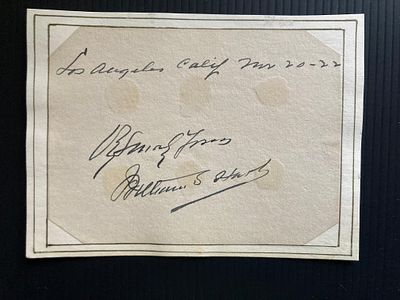 Los Angeles Calif Mar 20-22
Yours
William S Hart